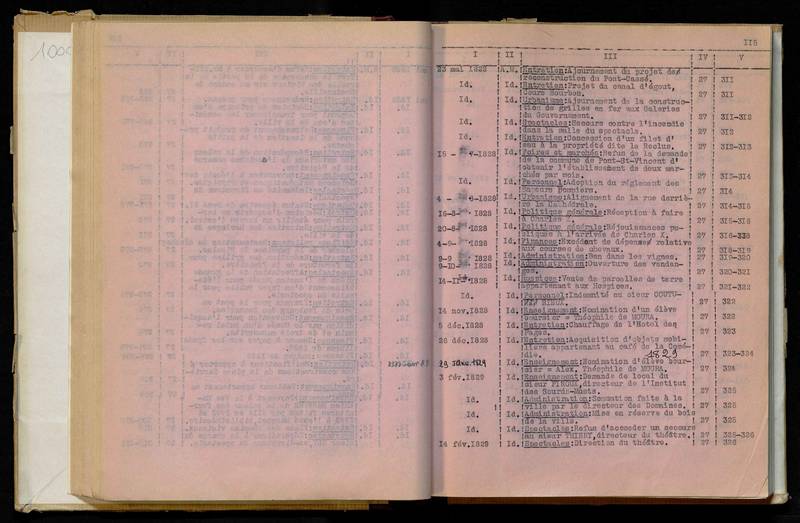 100
115
I II III IV V
23 mai 1828 A.M. Entretien:Ajournement du projet de
reconstruction du Pont-Cassé. 27 311
Id. Id. Entretien:Projet du canal d'égout,
Cours Bourbon. 27 311
Id. Id. Urbanisme:Ajournement de la construc-
tion de grilles en fer aux Galeries
du Gouvernement. 27 311-312
Id. Id. Spectacles:Secours contre l'incendie
dans la salle du spectacle. 27 312
Id. Id. Entretien:Concession d'un filet d'
eau à la propriété dite le Reclus. 27 312-313
18 - 7-1828 Id. Foires et marchés:Refus de la demande
de la commune de Pont-St-Vincent d'
obtenir l'établissement de deux mar-
chés par mois. 27 313-314
Id. Id. Personnel:Adoption du règlement des
Sapeurs Pompiers. 27 314
4 - 8-1828 Id. Urbanisme:Alignement de la rue derriè-
re la Cathédrale. 27 314-315
16-8- 1828 Id. Politique générale:Réception à faire
à Charles X. 27 315-316
20-8- 1828 Id. Politique générale:Réjouissances pu-
bliques à l'arrivée de Charles X. 27 316-
4-9- 1828 Id. Finances:Excédent de dépenses relative
aux courses de chevaux. 27 318-319
9-9 1828 Id. Administration:Ban dans les vignes. 27 319-320
9-10- 1828 Id. Administration:Ouverture des vendan-
ges. 27 320-321
14-11- 1828 Id. Hospices:Vente de parcelles de terre
appartenant aux Hospices. 27 321-322
Id. Id. Personnel:Indemnité au sieur
27 322
14 nov.1828 Id. Enseignement:Nomination d'un élève
boursier = Théophile de MOURA. 27 322
5 déc.1828 Id. Entretien:Chauffage de l'Hôtel des
Pages. 27 323
26 déc.1828 Id. Entretien:Acquisition d'objets mobi-
liers appartenant au café de la Comé-
die. 1829 27 323-324
Id. Enseignement:Nomination d'élève bour-
sier = Alex. Théophile de MOURA. 27 324
3 fév.1829 Id. Enseignement:Demande de local du
sieur PIROUX,directeur de l'Institut
des Sourds-Muets. 27 325
Id. Id. Administration:Sommation faite à la
ville par le directeur des Domaines. 27 325
Id. Id. Administration:Mise en réserve du bois
de la ville. 27 325
Id. Id. Spectacles:Refus d'accorder un secours
au sieur THIBRY,directeur du théâtre. 27 325-326
14 fév.1829 Id. Spectacles:Direction du théâtre. 27 326